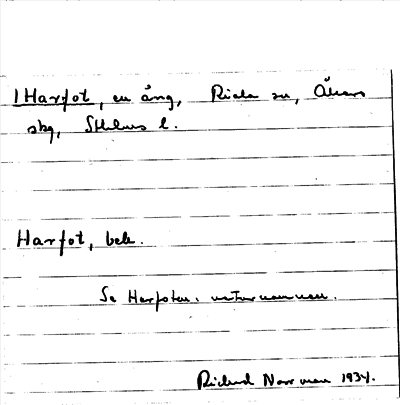 1 Harfot, en äng, Riala sn, Åkers
skg, Sthlms l.
Harfot, bek.
Se Harfoten, naturnamnen.
Rickard Norrman 1934.